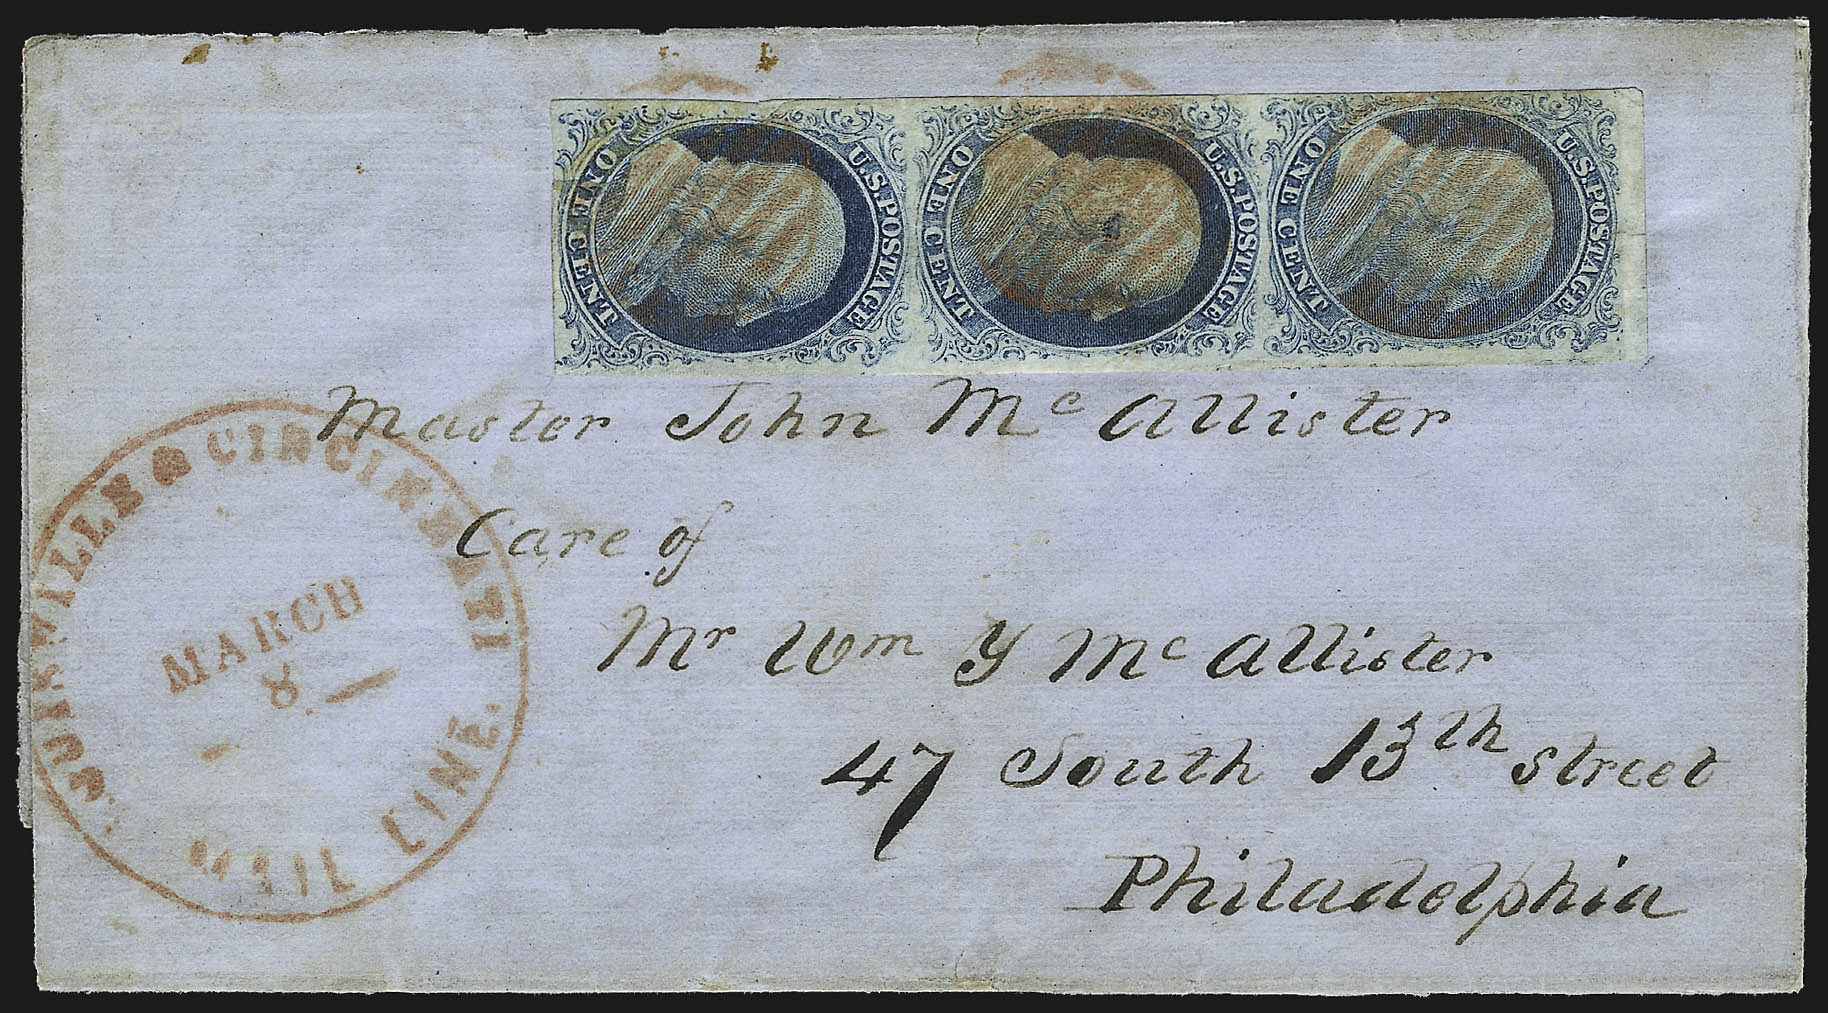 U.S. POSTAGE
ONE CENT
U.S. POSTAGE
ONE CENT
U.S. POSTAGE
ONE CENT
Master John Mc Allister
Care of
Mr Wm Y Mc Allister
47 South 13th street
Philadelphia
LOUISVILLE & CINCINNATI
MARCH
8
MAIL LINE.